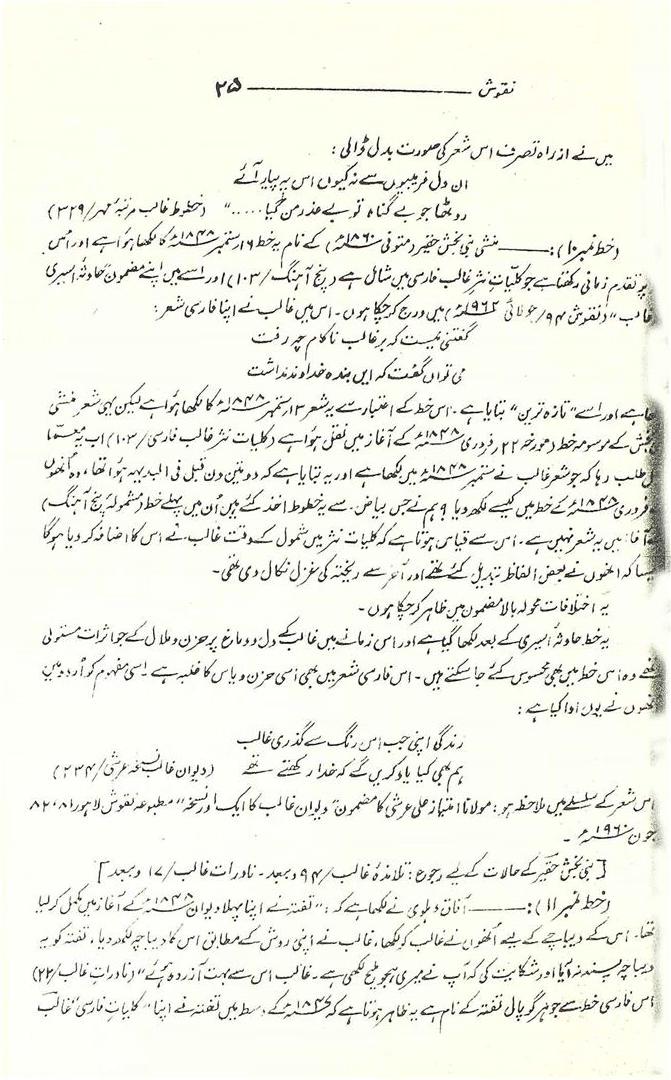 نقوش ——— ۲۵
میں نے از راہ تصرف اس شعر کی صورت بدل ڈالی :
ان دل فریبیوں سے نہ کیوں اس پہ پیار آئے
روٹھا جو بے گناہ تو بے عذر من گیا ....." (خطوط غالب مرتبہ مہر/۳۲۹)
(خط نمبر ۱۰) : ——— منشی نبی بخش حقیر (متوفی ۱۸۶۰ء) کے نام یہ خط ۱۶ ستمبر ۱۸۴۸ء کا لکھا ہوا ہے اور اس
پر تقادم زمانی رکھتا ہے جو کلیات نثر غالب فارسی میں شامل ہے (پنج آہنگ/۱۰۳) اور اسے میں اپنے مضمون حادثہ اسیری
غالب" (نقوش ۹۴/ جولائی ۱۹۶۲ء) میں درج کر چکا ہوں۔ اس میں غالب نے اپنا فارسی شعر :
گفتنی نیست کہ بر غالب ناکام چہ رفت
می تواں گفت کہ ایں بندہ خداوند نداشت
ہے اور اسے "تازہ ترین" بتایا ہے۔ اس خط کے اعتبار سے یہ شعر ۱۳ ستمبر ۱۸۴۸ء کا لکھا ہوا ہے لیکن یہی شعر منشی
بخش کے موسومہ خط (مورخہ ۲۲ فروری ۱۸۴۸ء) کے آغاز میں نقل ہوا ہے (کلیات نثر غالب فارسی/۱۰۳) اب یہ معما
طلب رہا کہ جو شعر غالب نے ستمبر ۱۸۴۸ء میں لکھا ہے اور یہ بتایا ہے کہ دو تین دن قبل فی البدیہہ ہوا تھا، وہ انھوں
فروری ۱۸۴۸ء کے خط میں کیسے لکھ دیا؟ ہم نے جس بیاض سے یہ خطوط اخذ کئے ہیں اُن میں پہلے خط (مشمولہ پنج آہنگ)
آغاز میں یہ شعر نہیں ہے۔ اس سے قیاس ہوتا ہے کہ کلیات نثر میں شمول کے وقت غالب نے اس کا اضافہ کر دیا ہوگا
جیسا کہ انھوں نے بعض الفاظ تبدیل کئے تھے اور آخر سے ریختہ کی غزل نکال دی تھی۔
یہ اختلافات محولہ بالا مضمون میں ظاہر کر چکا ہوں۔
یہ خط حادثہ اسیری کے بعد لکھا گیا ہے اور اس زمانے میں غالب کے دل و دماغ پر حزن و ملال کے جو اثرات مستولی
تھے وہ اس خط میں بھی محسوس کئے جا سکتے ہیں۔ اس فارسی شعر میں بھی اسی حزن و یاس کا غلبہ ہے۔ اسی مفہوم کو اُردو میں
انھوں نے یوں ادا کیا ہے :
زندگی اپنی جب اس رنگ سے گذری غالب
ہم بھی کیا یاد کریں گے کہ خدا رکھتے تھے (دیوان غالب نسخہ عرشی/۲۳۴)
اس شعر کے سلسلے میں ملاحظہ ہو : مولانا امتیاز علی عرشی کا مضمون "دیوان غالب کا ایک اور نسخہ" مطبوعہ نقوش لاہور ۸۲،۸۱
جون ۱۹۶۰ء ۔
[نبی بخش حقیر کے حالات کے لیے رجوع : تلامذہ غالب/۹۴ و بعد۔ نادرات غالب/۱۷ و بعد]
(خط نمبر ۱۱) : ——— آفاق دہلوی نے لکھا ہے کہ : "تفتہ نے اپنا پہلا دیوان ۱۸۴۸ء کے آغاز میں مکمل کر لیا
تھا۔ اس کے دیباچے کے لیے انھوں نے غالب کو لکھا، غالب نے اپنی روش کے مطابق اس کا دیباچہ لکھ دیا، تفتہ کو یہ
دیباچہ پسند نہ آیا اور شکایت کی کہ آپ نے میری ہجو ملیح لکھی ہے۔ غالب اس سے بہت آزردہ ہوئے" (نادرات غالب/۲۲)
اس فارسی خط سے جو ہرگوپال تفتہ کے نام ہے یہ ظاہر ہوتا ہے کہ ۱۸۴۷ء کے وسط میں تفتہ نے اپنا "کلیات فارسی" غالب